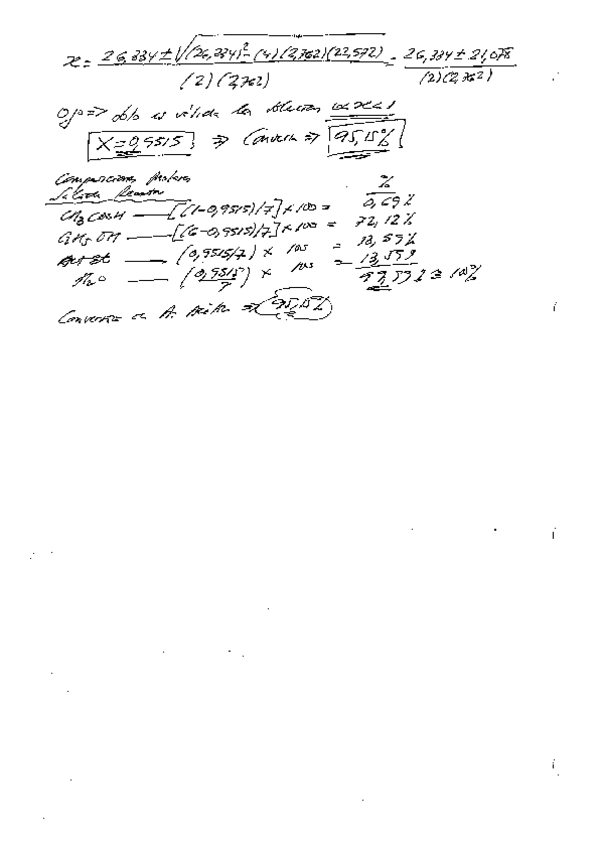 x = (26,334 ± √((26,334)² - (4)(2,762)(22,572))) / ((2)(2,762)) = (26,334 ± 21,078) / ((2)(2,762))
Ojo => sólo es válida la solución con x<1
X = 0,9515 => Conversión => 95,15%
Composiciones molares %
Salida Reactor
CH3COOH —— [(1-0,9515)/7] x 100 = 0,69%
C2H5OH —— [(6-0,9515)/7] x 100 = 72,12%
AcEt —— (0,9515/7) x 100 = 13,59%
H2O —— (0,9515/7) x 100 = 13,59%
99,99% ≅ 100%
Conversión en A. Acético => 95,15%